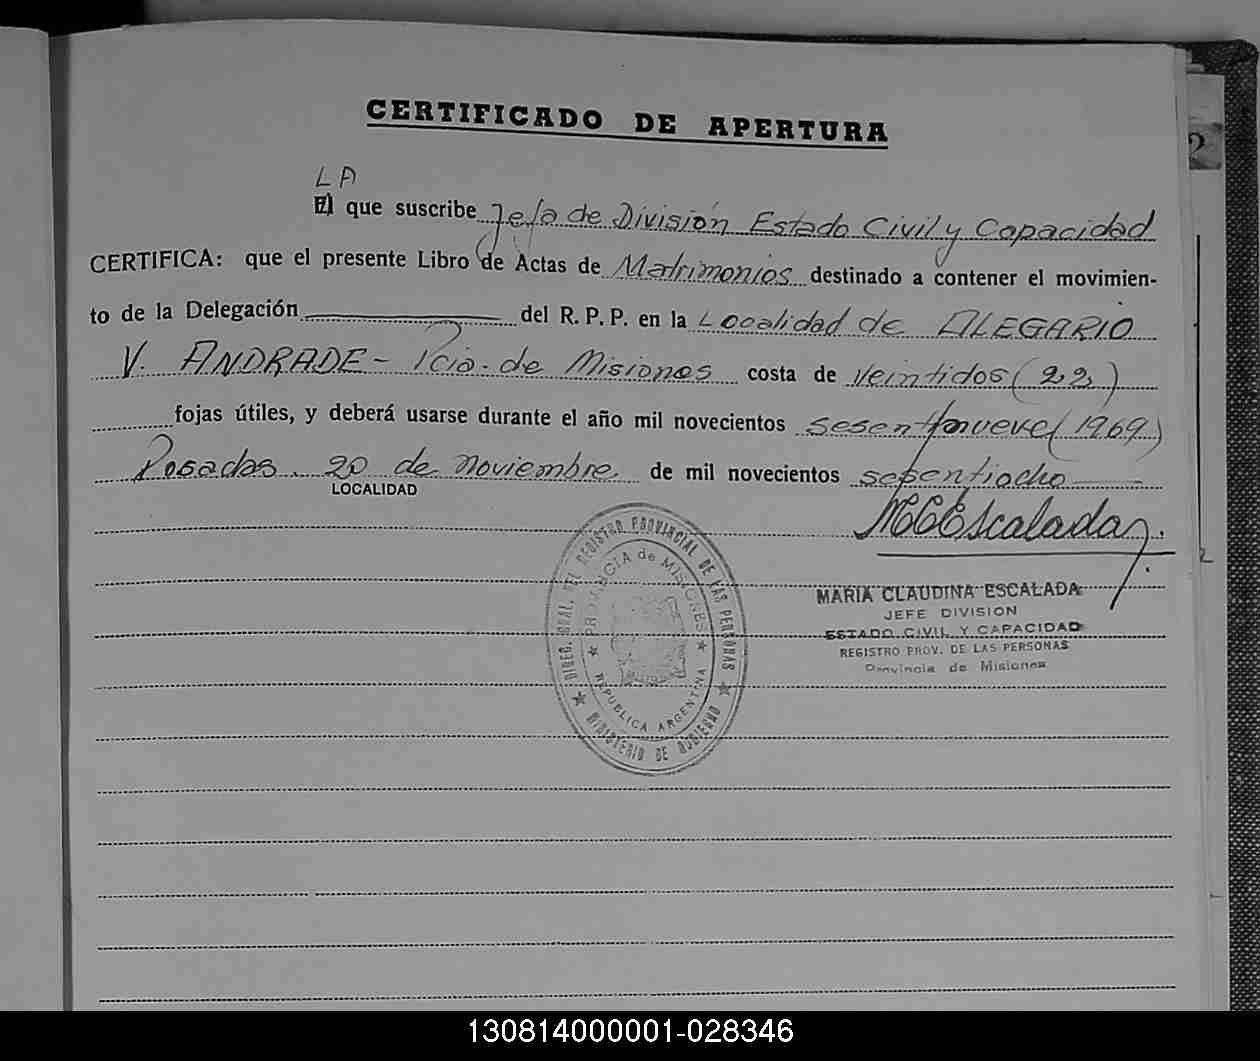 CERTIFICADO DE APERTURA
LA
El que suscribe Jefa de División Estado Civil y Capacidad
CERTIFICA: que el presente Libro de Actas de Matrimonios destinado a contener el movimien-
to de la Delegación del R. P. P. en la Localidad de OLEGARIO
V. ANDRADE - Pcia. de Misiones costa de veintidos (22)
fojas útiles, y deberá usarse durante el año mil novecientos sesentinueve (1969)
Posadas. 20 de noviembre de mil novecientos sesentiocho
LOCALIDAD
MCEscalada
DIREC. GRAL. DEL REGISTRO PROVINCIAL DE LAS PERSONAS
PROVINCIA de MISIONES
REPUBLICA ARGENTINA
MINISTERIO DE GOBIERNO
MARIA CLAUDINA ESCALADA
JEFE DIVISION
ESTADO CIVIL Y CAPACIDAD
REGISTRO PROV. DE LAS PERSONAS
Provincia de Misiones
130814000001-028346